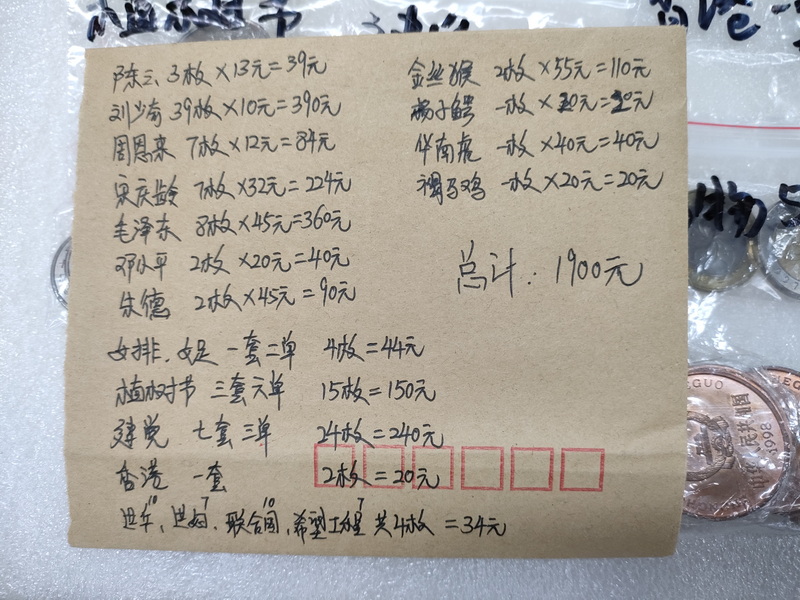 植树节
香港一
陈云 3枚×13元=39元
刘少奇 39枚×10元=390元
周恩来 7枚×12元=84元
宋庆龄 7枚×32元=224元
毛泽东 8枚×45元=360元
邓小平 2枚×20元=40元
朱德 2枚×45元=90元
女排、女足 一套二单 4枚=44元
植树节 三套六单 15枚=150元
建党 七套三单 24枚=240元
香港 一套 2枚=20元
10 7 10 7
世妇、联合国、希望工程 共4枚 =34元
金丝猴 2枚×55元=110元
杨子鳄 一枚×20元=20元
华南虎 一枚×40元=40元
褐马鸡 一枚×20元=20元
总计:1900元
物
1998